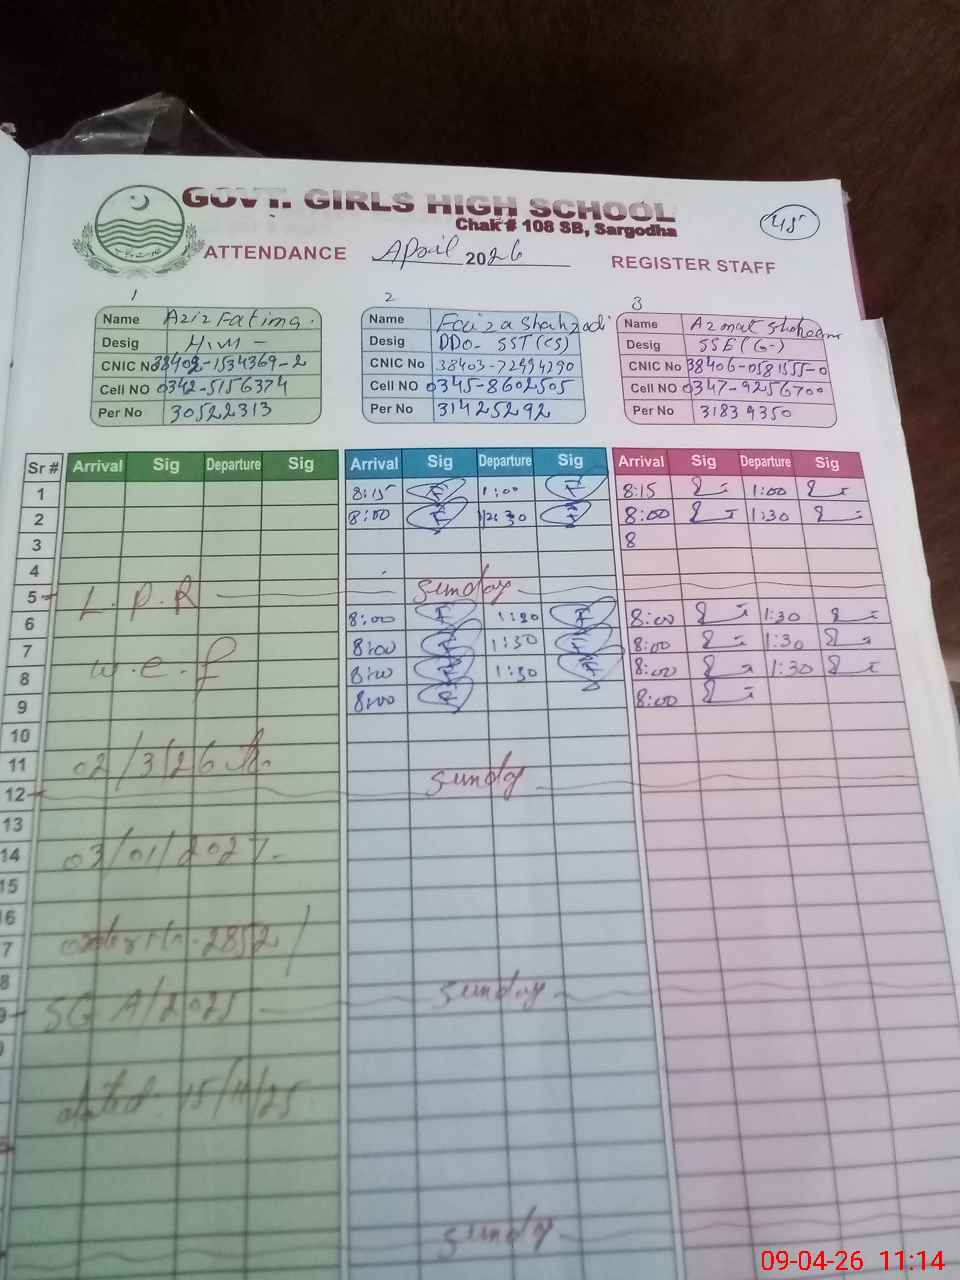 GOVT. GIRLS HIGH SCHOOL
Chak # 108 SB, Sargodha
45
ATTENDANCE April 2026 REGISTER STAFF
1 2 3
Name Aziz Fatima. Name Faiza Shahzadi Name Azmat Shaheem
Desig H.M - Desig DDO- SST (CS) Desig SSE (G-)
CNIC No 38402-1534369-2 CNIC No 38403-7299 CNIC No 38406-0581555-0
Cell NO 0342-5156374 Cell NO 0345-8602505 Cell NO 0347-9256700
Per No 30522313 Per No 31425292 Per No 31839350
Sr # Arrival Sig Departure Sig Arrival Sig Departure Sig Arrival Sig Departure Sig
1 8:15 1:00 8:15 1:00
2 8:00 30 8:00 1:30
3 8
4
5 L.P.R Sunday
6 8:00 1:30 8:00 1:30
7 8:00 1:30 8:00 1:30
8 w.e.f 8:00 1:30 8:00 1:30
9 8:00 8:00
10
11 02/3/26 to Sunday
12
13
14 03/01/2027-
15
16
7 2852/
8 Sunday
9 SG A/2025
dated: 15/11/25
Sunday
09-04-26 11:14